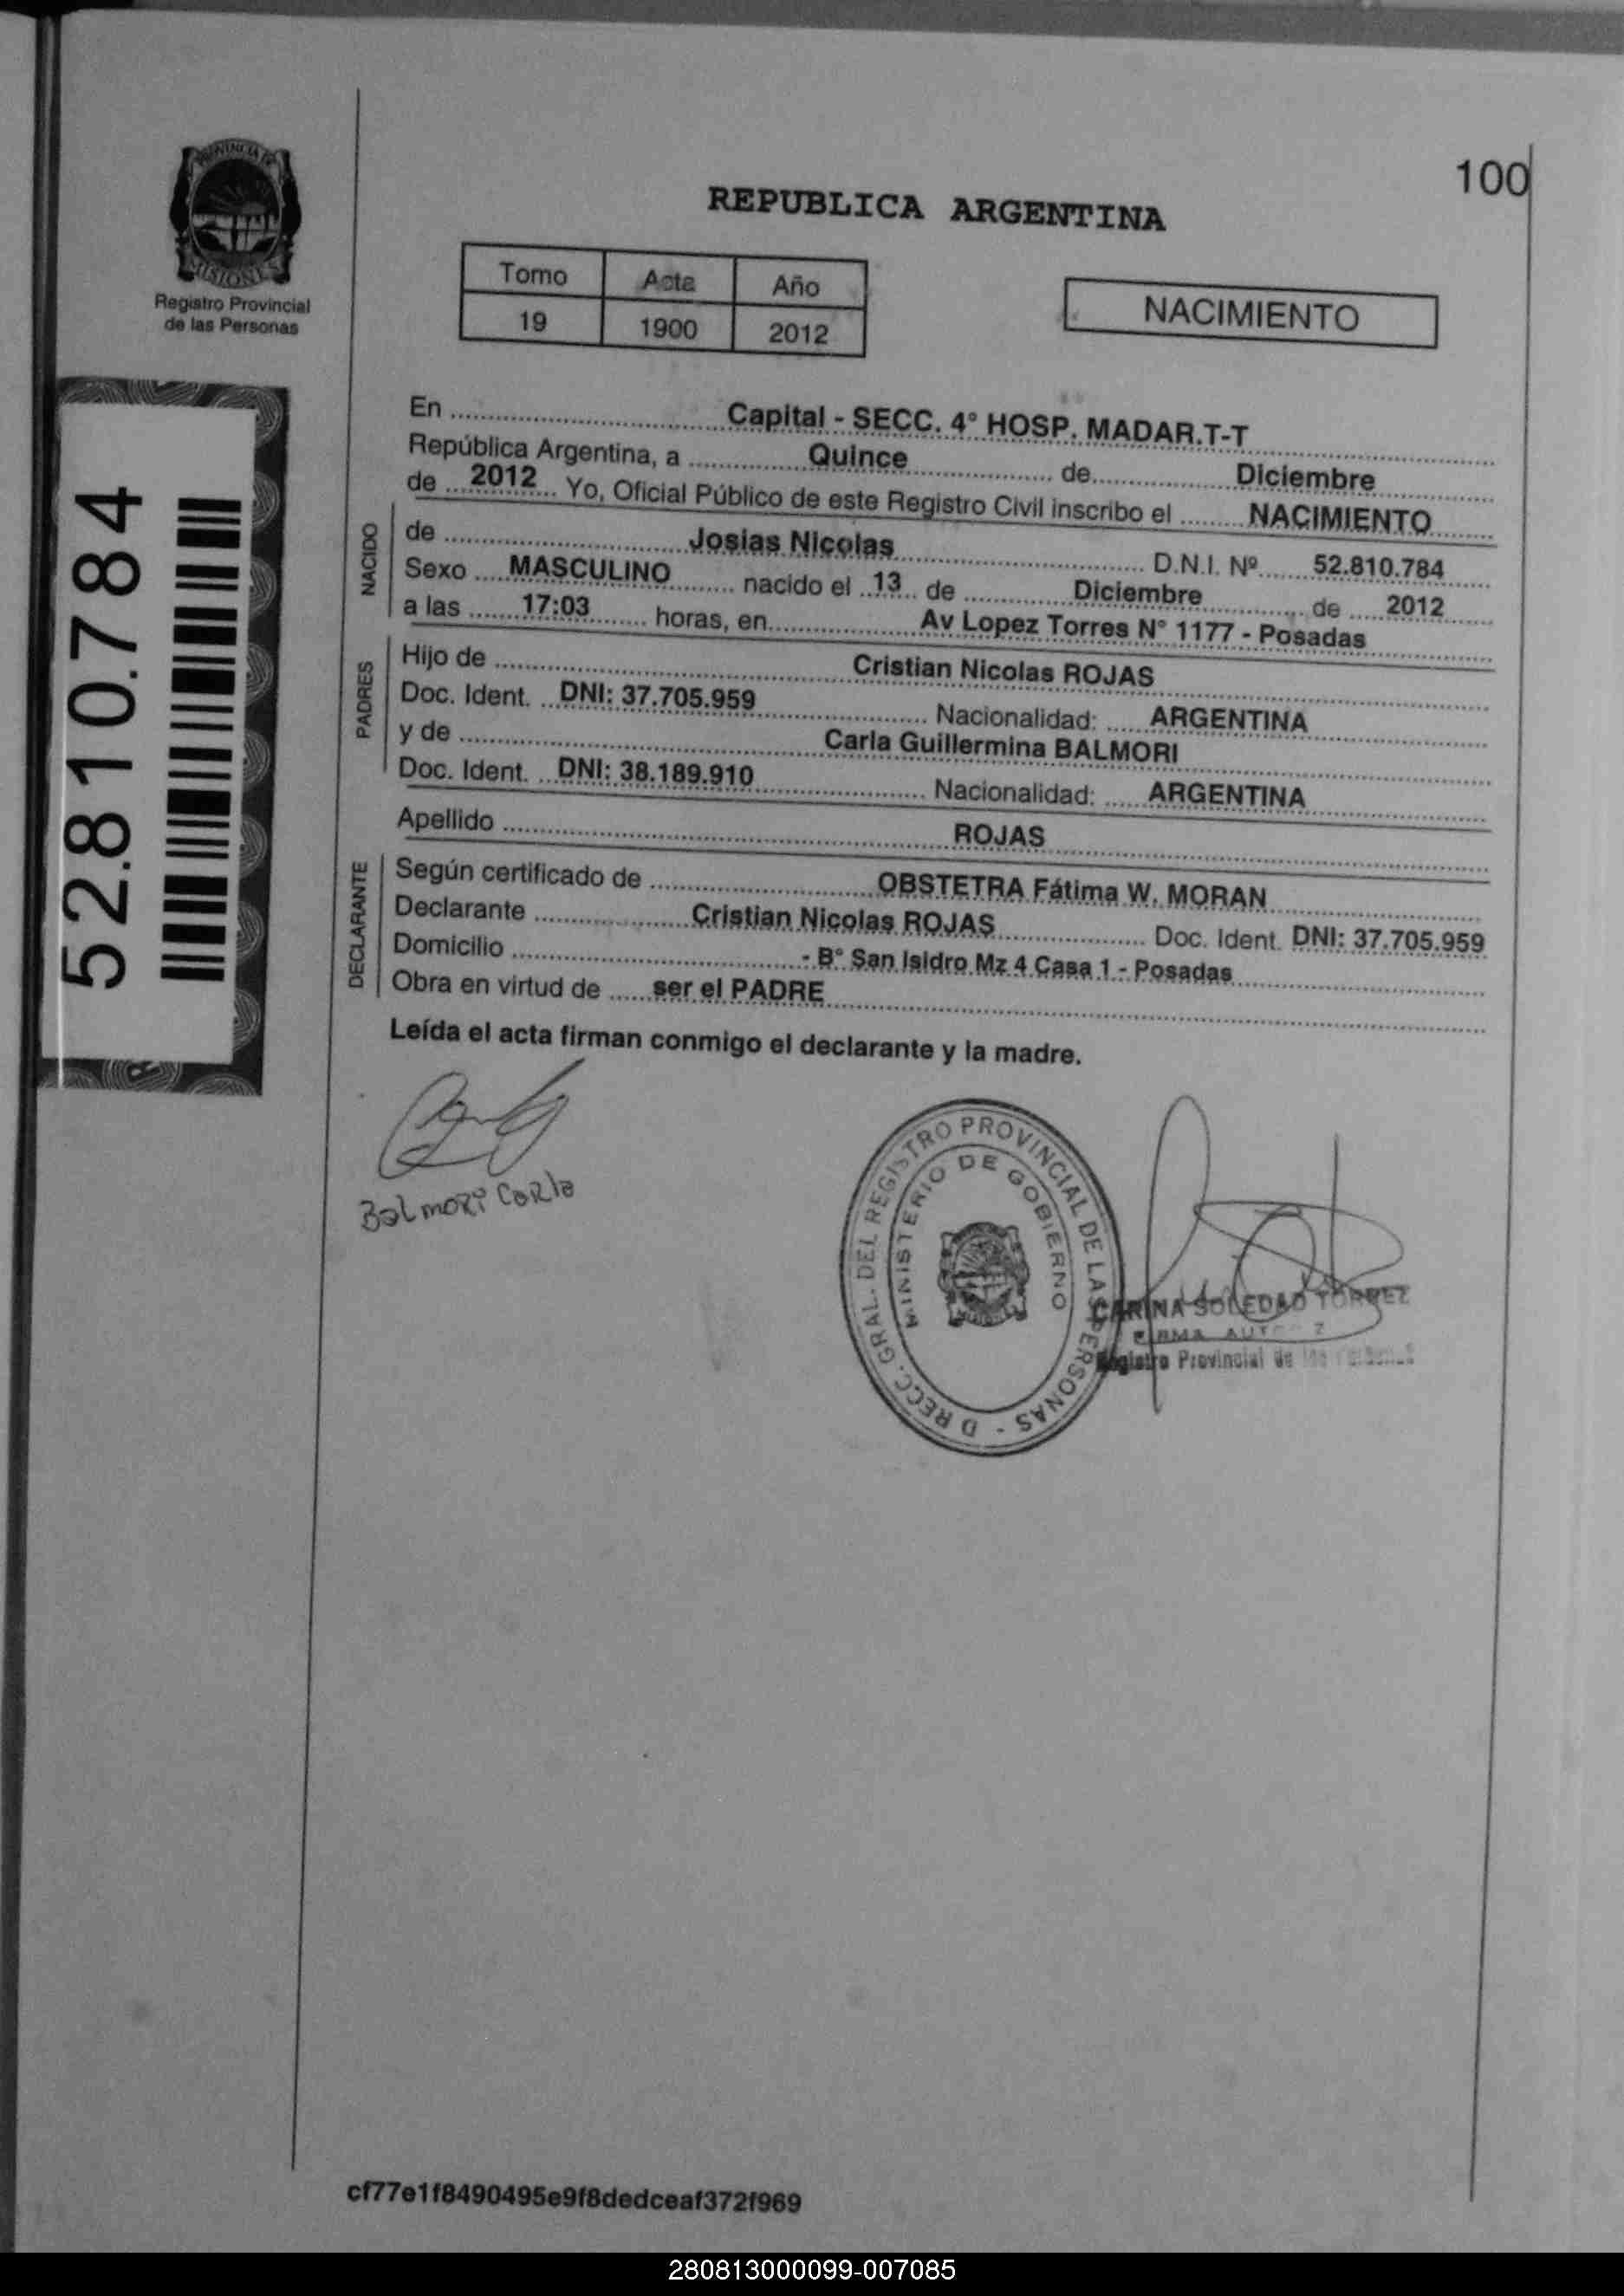 100
PROVINCIA DE
MISIONES
Registro Provincial
de las Personas
REPUBLICA ARGENTINA
Tomo Acta Año
19 1900 2012
NACIMIENTO
52.810.784
En Capital - SECC. 4° HOSP. MADAR.T-T
República Argentina, a Quince de Diciembre
de 2012 Yo, Oficial Público de este Registro Civil inscribo el NACIMIENTO
NACIDO
de Josias Nicolas D.N.I. Nº 52.810.784
Sexo MASCULINO nacido el 13 de Diciembre de 2012
a las 17:03 horas, en Av Lopez Torres N° 1177 - Posadas
PADRES
Hijo de Cristian Nicolas ROJAS
Doc. Ident. DNI: 37.705.959 Nacionalidad: ARGENTINA
y de Carla Guillermina BALMORI
Doc. Ident. DNI: 38.189.910 Nacionalidad: ARGENTINA
Apellido ROJAS
DECLARANTE
Según certificado de OBSTETRA Fátima W. MORAN
Declarante Cristian Nicolas ROJAS Doc. Ident. DNI: 37.705.959
Domicilio - B° San Isidro Mz 4 Casa 1 - Posadas
Obra en virtud de ser el PADRE
Leída el acta firman conmigo el declarante y la madre.
Balmori Carla
D RECC. GRAL. DEL REGISTRO PROVINCIAL DE LAS PERSONAS -
MINISTERIO DE GOBIERNO
CARINA SOLEDAD TORREZ
FIRMA
Registro Provincial de las
cf77e1f8490495e9f8dedceaf372f969
280813000099-007085